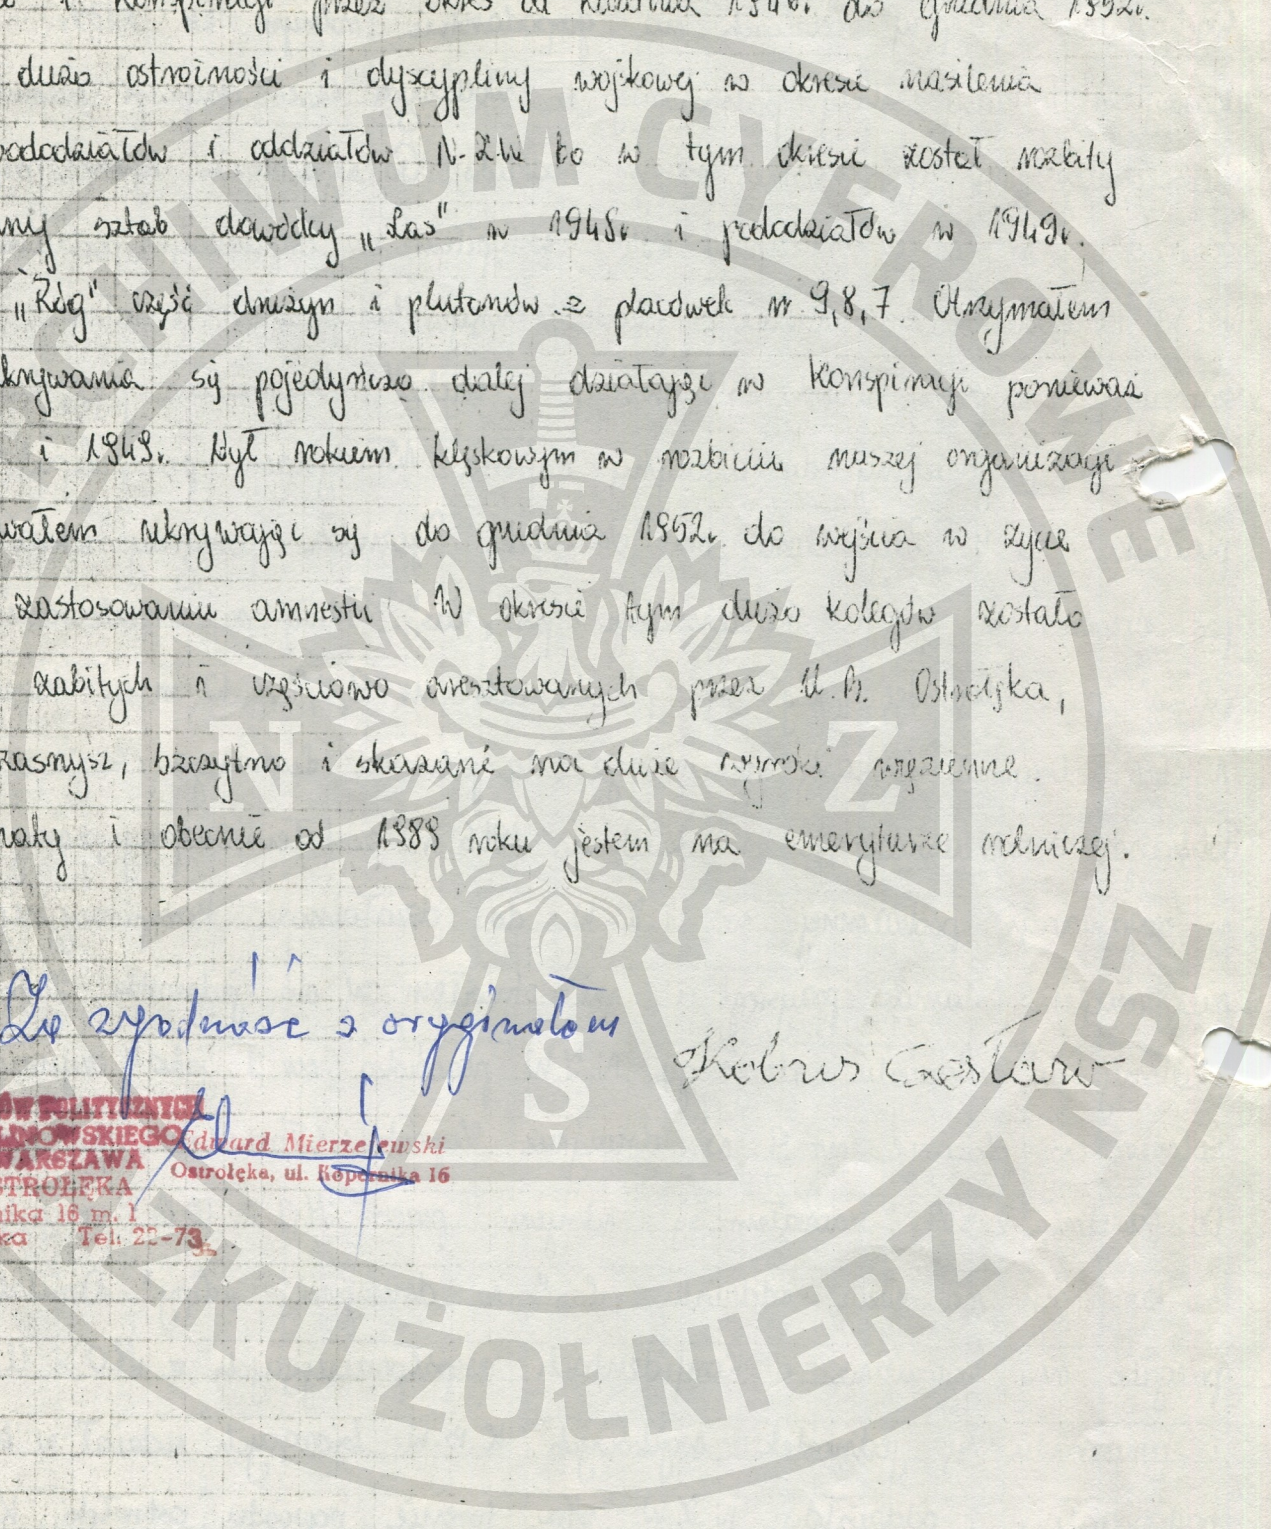 i konspiracji przez okres od kwietnia 1946r. do grudnia 1952r.
dużo ostrożności i dyscypliny wojskowej w okresie nasilenia
pododziałów i oddziałów N.Z.W. bo w tym okresie został rozbity
sztab dowódcy „Las" w 1948r. i pododziałów w 1949r.
„Róg" część drużyn i plutonów z placówek nr 9,8,7. Otrzymałem
krywania się pojedyńczo dalej działając w konspiracji ponieważ
i 1949r. był rokiem klęskowym w rozbiciu naszej organizacji
wałem ukrywając się do grudnia 1952r. do wejścia w życie
zastosowaniu amnestii W okresie tym dużo kolegów zostało
zabitych i częściowo aresztowanych przez U.B. Ostrołęka,
zasnysz, Szczytno i skazane na duże wyroki więzienne.
i obecnie od 1989 roku jestem na emeryturze rolniczej.
Za zgodność z oryginałem
Kobrus Czesław
ÓW POLITYCZNYCH
LINOWSKIEGO
WARSZAWA
STROŁĘKA
nika 16 m. 1
ka Tel. 22-73
Edward Mierzejewski
Ostrołęka, ul. Kopernika 16
ARCHIWUM CYFROWE
ZKU ŻOŁNIERZY NSZ
N S Z